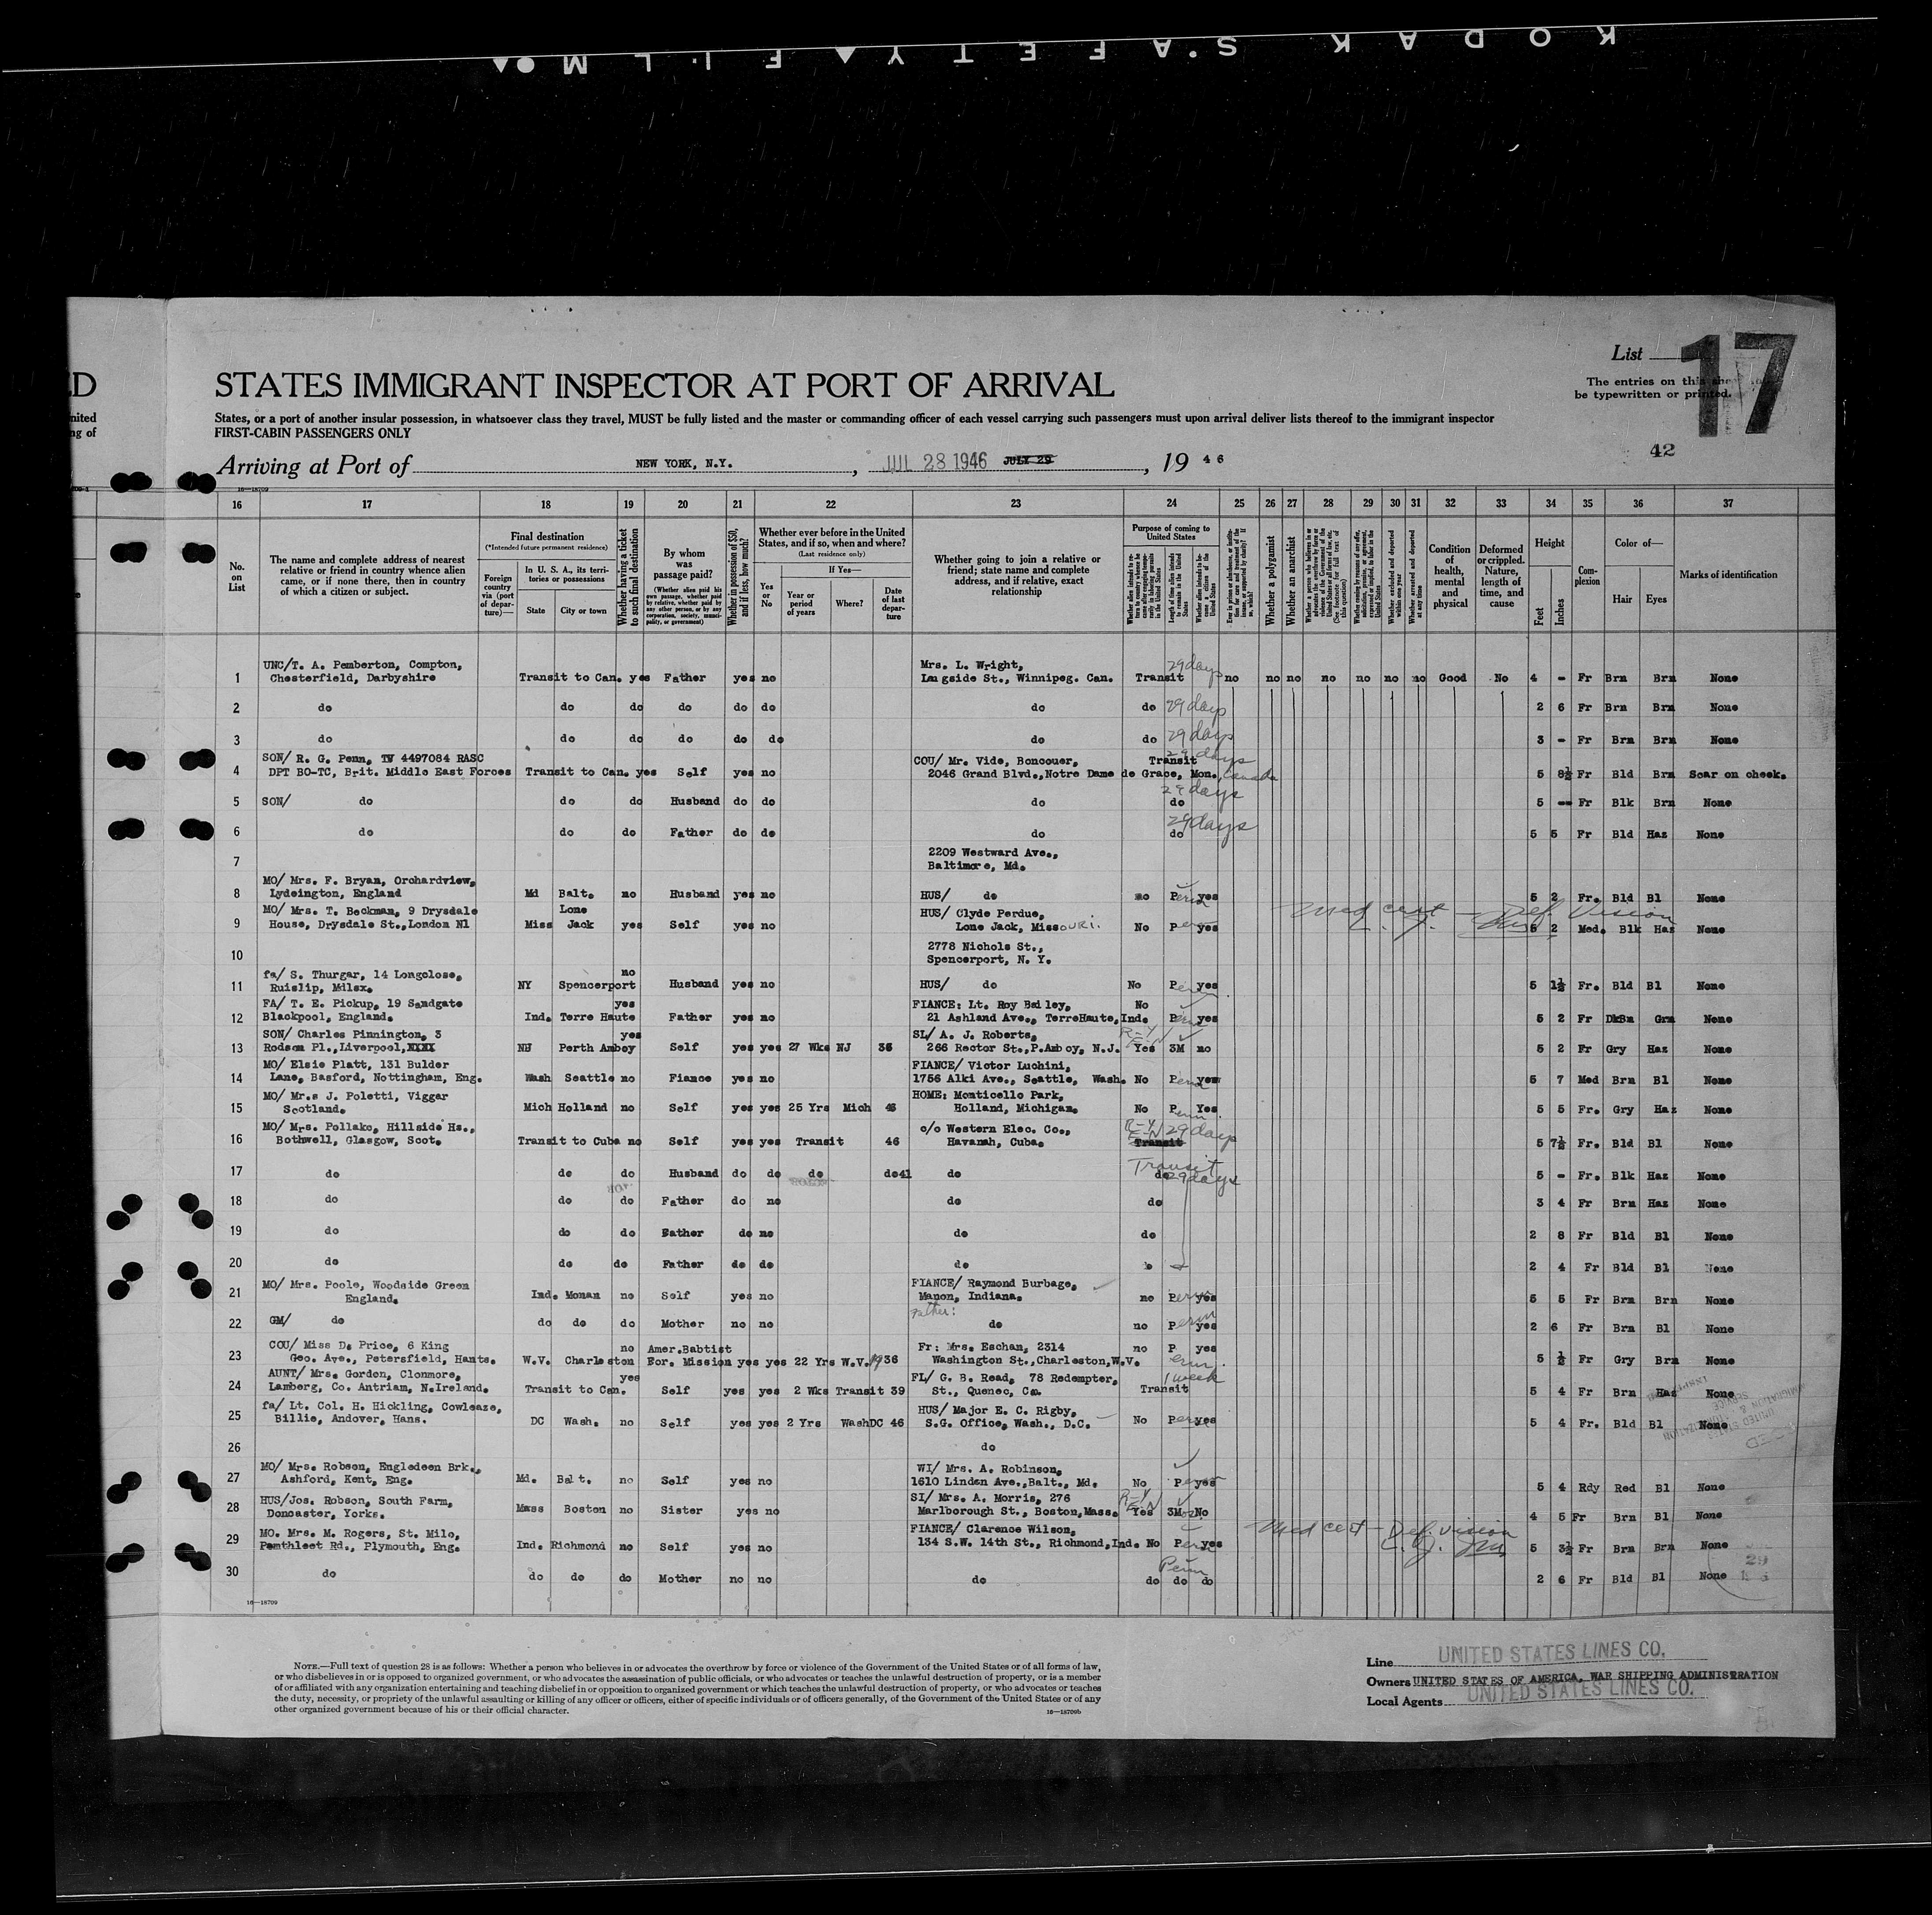 KODAK SAFETY FILM
List 17
The entries on this
be typewritten or printed.
42
STATES IMMIGRANT INSPECTOR AT PORT OF ARRIVAL
States, or a port of another insular possession, in whatsoever class they travel, MUST be fully listed and the master or commanding officer of each vessel carrying such passengers must upon arrival deliver lists thereof to the immigrant inspector
FIRST-CABIN PASSENGERS ONLY
Arriving at Port of NEW YORK, N.Y. , JUL 28 1946 JULY 29 , 19 46
16 17 18 19 20 21 22 23 24 25 26 27 28 29 30 31 32 33 34 35 36 37
No. on List
The name and complete address of nearest relative or friend in country whence alien came, or if none there, then in country of which a citizen or subject.
Final destination
(*Intended future permanent residence)
Foreign country via (port of departure)—
In U. S. A., its territories or possessions
State City or town
Whether having a ticket to such final destination
By whom was passage paid?
(Whether alien paid his own passage, whether paid by relative, whether paid by any other person, or by any corporation, society, municipality, or government)
Whether in possession of $50, and if less, how much?
Whether ever before in the United States, and if so, when and where?
(Last residence only)
Yes or No
If Yes—
Year or period of years Where? Date of last departure
Whether going to join a relative or friend; state name and complete address, and if relative, exact relationship
Purpose of coming to United States
Length of time alien intends to remain in the United States
Whether a polygamist
Whether an anarchist
Whether arrested and deported at any time
Condition of health, mental and physical
Deformed or crippled. Nature, length of time, and cause
Height
Feet Inches
Complexion
Color of—
Hair Eyes
Marks of identification
UNC/T. A. Pemberton, Compton, Mrs. L. Wright, 29days
1 Chesterfield, Darbyshire Transit to Can. yes Father yes no Langside St., Winnipeg. Can. Transit no no no no no no no Good No 4 - Fr Brn Brn None
2 do do do do do do do do 29days 2 6 Fr Brn Brn None
3 do do do do do do do do 29days 3 - Fr Brn Brn None
SON/ R. G. Penn, TV 4497084 RASC COU/ Mr. Vide, Boncouer, Transit 29 days
4 DPT BO-TC, Brit. Middle East Forces Transit to Can. yes Self yes no 2046 Grand Blvd.,Notre Dame de Grace, Mon., Canada 5 8½ Fr Bld Brn Scar on cheek.
5 SON/ do do do Husband do do do do 29days 5 -- Fr Blk Brn None
6 do do do Father do do do do 29days 5 5 Fr Bld Haz None
7 2209 Westward Ave.,
Baltimore, Md.
MO/ Mrs. F. Bryan, Orchardview,
8 Lydeington, England Md Balt. no Husband yes no HUS/ do no Perm yes 5 2 Fr. Bld Bl None
MO/ Mrs. T. Beckman, 9 Drysdale Lone HUS/ Clyde Perdue, Med cert - Def. Vision
9 House, Drysdale St.,London N1 Miss Jack yes Self yes no Lone Jack, Missouri. No Perm yes 5 2 Med. Blk Haz None
10 2778 Nichols St.,
Spencerport, N. Y.
fa/ S. Thurgar, 14 Longclose, no
11 Ruislip, Mdlsx. NY Spencerport Husband yes no HUS/ do No Perm yes 5 1½ Fr. Bld Bl None
FA/ T. E. Pickup, 19 Sandgate yes FIANCE: Lt. Roy Bailey, No
12 Blackpool, England. Ind. Terre Haute Father yes no 21 Ashland Ave., TerreHaute,Ind. Perm yes 5 2 Fr DkBn Grn None
SON/ Charles Pinnington, 3 yes SL/ A. J. Roberts,
13 Rodson Pl.,Liverpool,XXXX NJ Perth Amboy Self yes yes 27 Wks NJ 36 266 Rector St.,P.Amboy, N.J. Yes 3M no 5 2 Fr Gry Haz None
MO/ Elsie Platt, 131 Bulder FIANCE/ Victor Luchini,
14 Lane, Basford, Nottingham, Eng. Wash Seattle no Fiance yes no 1756 Alki Ave., Seattle, Wash. No Perm yes 5 7 Med Brn Bl None
MO/ Mr.s J. Poletti, Viggar HOME: Monticello Park,
15 Scotland. Mich Holland no Self yes yes 25 Yrs Mich Holland, Michigan. No Perm. Yes 5 5 Fr. Gry Haz None
MO/ Mrs. Pollako, Hillside Hs., c/o Western Elec. Co., 29days
16 Bothwell, Glasgow, Scot. Transit to Cuba no Self yes yes Transit 46 Havanah, Cuba. Transit 5 7½ Fr. Bld Bl None
17 do do do Husband do do do do41 do Transit do 29days 5 - Fr. Blk Haz None
18 do do do Father do no do do 3 4 Fr Brn Haz None
19 do do do Father do no do do 2 8 Fr Bld Bl None
20 do do do Father do do do 2 4 Fr Bld Bl None
MO/ Mrs. Poole, Woodside Green FIANCE/ Raymond Burbage,
21 England. Ind. Monan no Self yes no Manon, Indiana. no Perm yes 5 5 Fr Brn Brn None
Father:
22 GM/ do do do do Mother no no do no Perm yes 2 6 Fr Brn Bl None
COU/ Miss D. Price, 6 King no Amer.Babtist Fr: Mrs. Eschan, 2314 no P yes
23 Geo. Ave., Petersfield, Hants. W.V. Charleston For. Mission yes yes 22 Yrs W.V. 1936 Washington St.,Charleston,W.V. erm. 5 ½ Fr Gry Brn None
AUNT/ Mrs. Gordon, Clonmore, yes FL/ G. B. Read, 78 Redempter, 1 week
24 Lamberg, Co. Antriam, N.Ireland. Transit to Can. Self yes yes 2 Wks Transit 39 St., Quenec, Ca. Transit 5 4 Fr Brn Haz None
fa/ Lt. Col. H. Hickling, Cowleaze, HUS/ Major E. C. Rigby,
25 Billie, Andover, Hans. DC Wash. no Self yes yes 2 Yrs WashDC 46 S.G. Office, Wash., D.C. No Perm yes 5 4 Fr. Bld Bl None
26 do
MO/ Mrs. Robson, Engledeen Brk., WI/ Mrs. A. Robinson,
27 Ashford, Kent, Eng. Md. Balt. no Self yes no 1610 Linden Ave.,Balt., Md. No Perm yes 5 4 Rdy Red Bl None
HUS/Jos. Robson, South Farm, SI/ Mrs. A. Morris, 276
28 Doncaster, Yorks. Mass Boston no Sister yes no Marlborough St., Boston,Mass. Yes 3Moz No 4 5 Fr Brn Bl None
MO. Mrs. M. Rogers, St. Milo, FIANCE/ Clarence Wilson, Med cert - Def. vision
29 Pemthleet Rd., Plymouth, Eng. Ind. Richmond no Self yes no 134 S.W. 14th St., Richmond,Ind. No Perm yes 5 3½ Fr Brn Brn None
Perm
30 do do do do Mother no no do do do do 2 6 Fr Bld Bl None
16—18709
NOTE.—Full text of question 28 is as follows: Whether a person who believes in or advocates the overthrow by force or violence of the Government of the United States or of all forms of law,
or who disbelieves in or is opposed to organized government, or who advocates the assassination of public officials, or who advocates or teaches the unlawful destruction of property, or is a member
of or affiliated with any organization entertaining and teaching disbelief in or opposition to organized government or which teaches the unlawful destruction of property, or who advocates or teaches
the duty, necessity, or propriety of the unlawful assaulting or killing of any officer or officers, either of specific individuals or of officers generally, of the Government of the United States or of any
other organized government because of his or their official character.
16—18709b
Line UNITED STATES LINES CO.
Owners UNITED STATES OF AMERICA, WAR SHIPPING ADMINISTRATION
Local Agents UNITED STATES LINES CO.